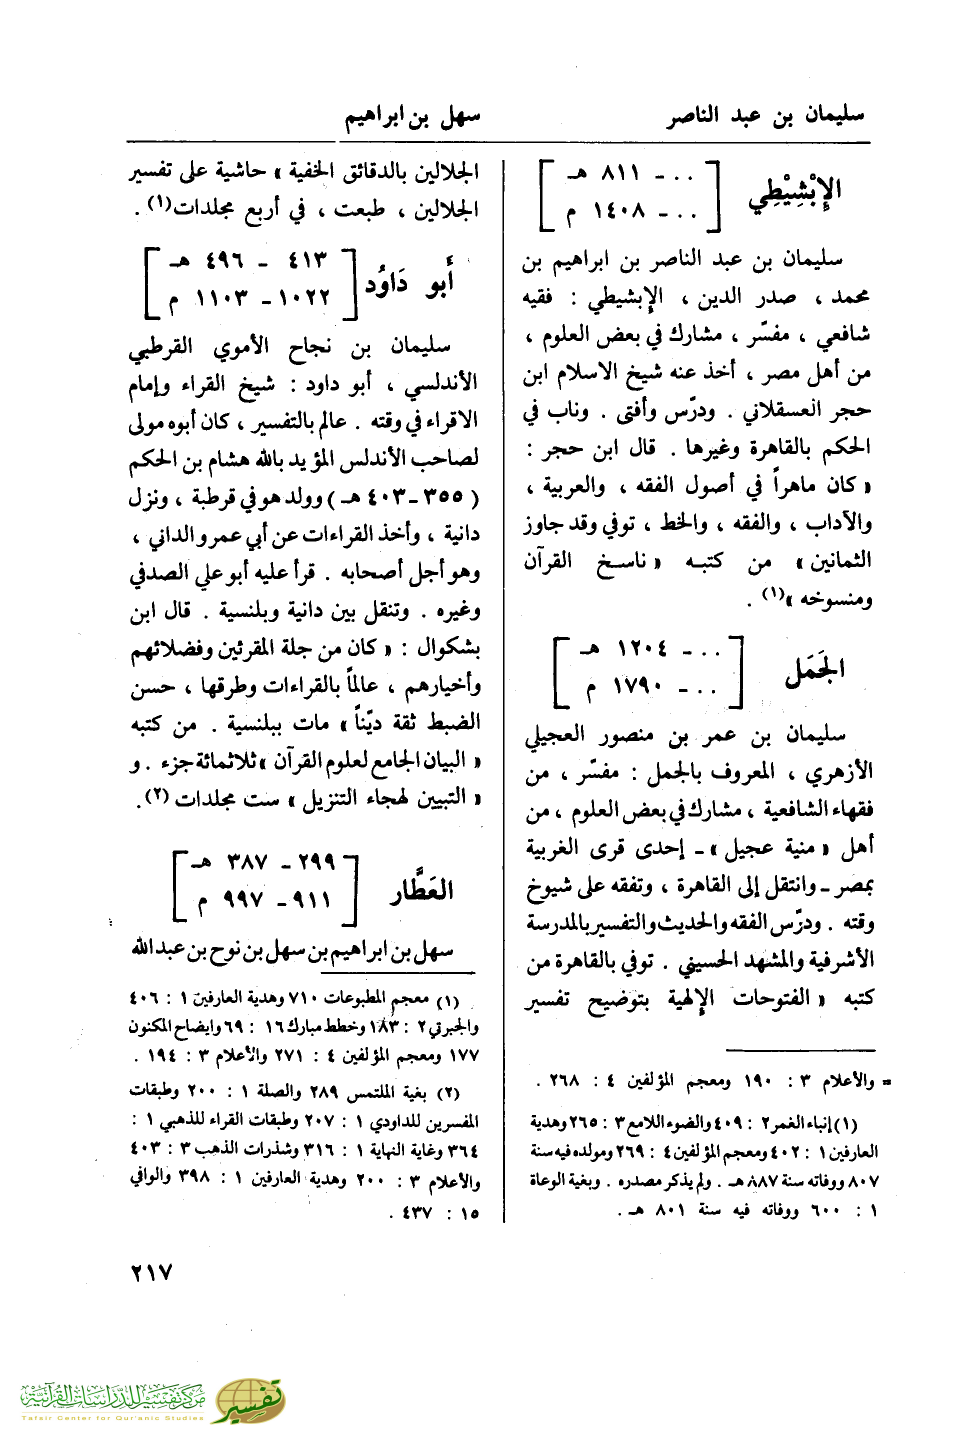 سليمان بن عبد الناصر
سهل بن ابراهيم
الإِبْشِيْطِي
... - ٨١١ هـ
... - ١٤٠٨ م
سليمان بن عبد الناصر بن ابراهيم بن
محمد ، صدر الدين ، الإبشيطي : فقيه
شافعي ، مفسّر ، مشارك في بعض العلوم ،
من أهل مصر ، أخذ عنه شيخ الاسلام ابن
حجر العسقلاني . ودرّس وأفتى . وناب في
الحكم بالقاهرة وغيرها . قال ابن حجر :
« كان ماهراً في أصول الفقه ، والعربية ،
والآداب ، والفقه ، والخط ، توفي وقد جاوز
الثمانين » من كتبه « ناسخ القرآن
ومنسوخه »(١) .
الجَمَل
... - ١٢٠٤ هـ
... - ١٧٩٠ م
سليمان بن عمر بن منصور العجيلي
الأزهري ، المعروف بالجمل : مفسّر ، من
فقهاء الشافعية ، مشارك في بعض العلوم ، من
أهل « منية عجيل » - إحدى قرى الغربية
بمصر - وانتقل إلى القاهرة ، وتفقه على شيوخ
وقته . ودرّس الفقه والحديث والتفسير بالمدرسة
الأشرفية والمشهد الحسيني . توفي بالقاهرة من
كتبه « الفتوحات الإلهية بتوضيح تفسير
= والأعلام ٣ : ١٩٠ ومعجم المؤلفين ٤ : ٢٦٨ .
(١) إنباء الغمر ٢ : ٤٠٩ والضوء اللامع ٣ : ٢٦٥ وهدية
العارفين ١ : ٤٠٢ ومعجم المؤلفين ٤ : ٢٦٩ ومولده فيه سنة
٨٠٧ ووفاته سنة ٨٨٧ هـ . ولم يذكر مصدره . وبغية الوعاة
١ : ٦٠٠ ووفاته فيه سنة ٨٠١ هـ .
الجلالين بالدقائق الخفية » حاشية على تفسير
الجلالين ، طبعت ، في أربع مجلدات(١) .
أَبو دَاوُد
٤١٣ - ٤٩٦ هـ
١٠٢٢ - ١١٠٣ م
سليمان بن نجاح الأموي القرطبي
الأندلسي ، أبو داود : شيخ القراء وإمام
الاقراء في وقته . عالم بالتفسير ، كان أبوه مولى
لصاحب الأندلس المؤيد بالله هشام بن الحكم
( ٣٥٥ - ٤٠٣ هـ ) وولد هو في قرطبة ، ونزل
دانية ، وأخذ القراءات عن أبي عمرو الداني ،
وهو أجل أصحابه . قرأ عليه أبو علي الصدفي
وغيره . وتنقل بين دانية وبلنسية . قال ابن
بشكوال : « كان من جلة المقرئين وفضلائهم
وأخيارهم ، عالماً بالقراءات وطرقها ، حسن
الضبط ثقة ديّناً » مات ببلنسية . من كتبه
« البيان الجامع لعلوم القرآن » ثلاثمائة جزء . و
« التبيين لهجاء التنزيل » ست مجلدات (٢).
العَطَّار
٢٩٩ - ٣٨٧ هـ
٩١١ - ٩٩٧ م
سهل بن ابراهيم بن سهل بن نوح بن عبد الله
(١) معجم المطبوعات ٧١٠ وهدية العارفين ١ : ٤٠٦
والجبرتي ٢ : ١٨٣ وخطط مبارك ١٦ : ٦٩ وايضاح المكنون
١٧٧ ومعجم المؤلفين ٤ : ٢٧١ والأعلام ٣ : ١٩٤ .
(٢) بغية الملتمس ٢٨٩ والصلة ١ : ٢٠٠ وطبقات
المفسرين للداودي ١ : ٢٠٧ وطبقات القراء للذهبي ١ :
٣٦٤ وغاية النهاية ١ : ٣١٦ وشذرات الذهب ٣ : ٤٠٣
والأعلام ٣ : ٢٠٠ وهدية العارفين ١ : ٣٩٨ والوافي
١٥ : ٤٣٧ .
٢١٧
مركز تفسير للدراسات القرآنية
Tafsir Center for Qur'anic Studies
تفسير